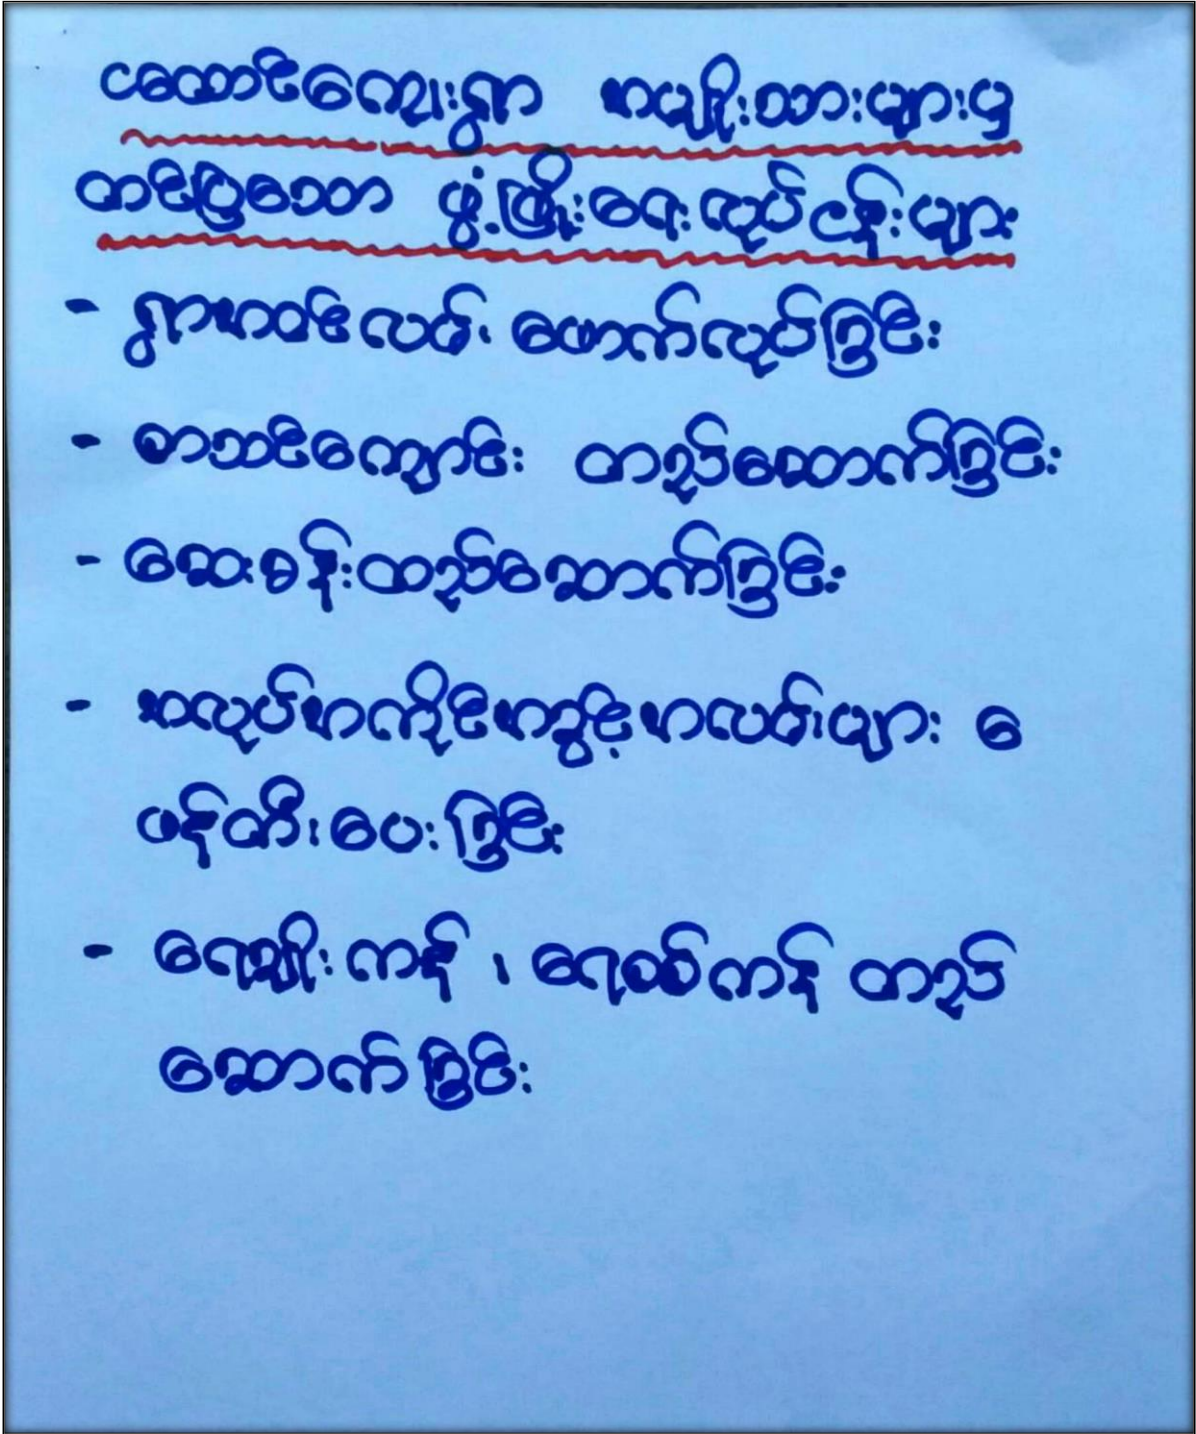 ငထောင်ကျေးရွာ အမျိုးသားများမှ
တင်ပြသော ဖွံ့ဖြိုးရေးလုပ်ငန်းများ
- ရွာအဝင်လမ်း ဖောက်လုပ်ခြင်း
- စာသင်ကျောင်း တည်ဆောက်ခြင်း
- ဆေးခန်းထည်ဆောက်ခြင်း
- အလုပ်အကိုင်အခွင့်အလမ်းများ ေ
ဖန်တီးပေးခြင်း
- ရေချိုးကန် ၊ ရေစစ်ကန် တည်
ဆောက်ခြင်း